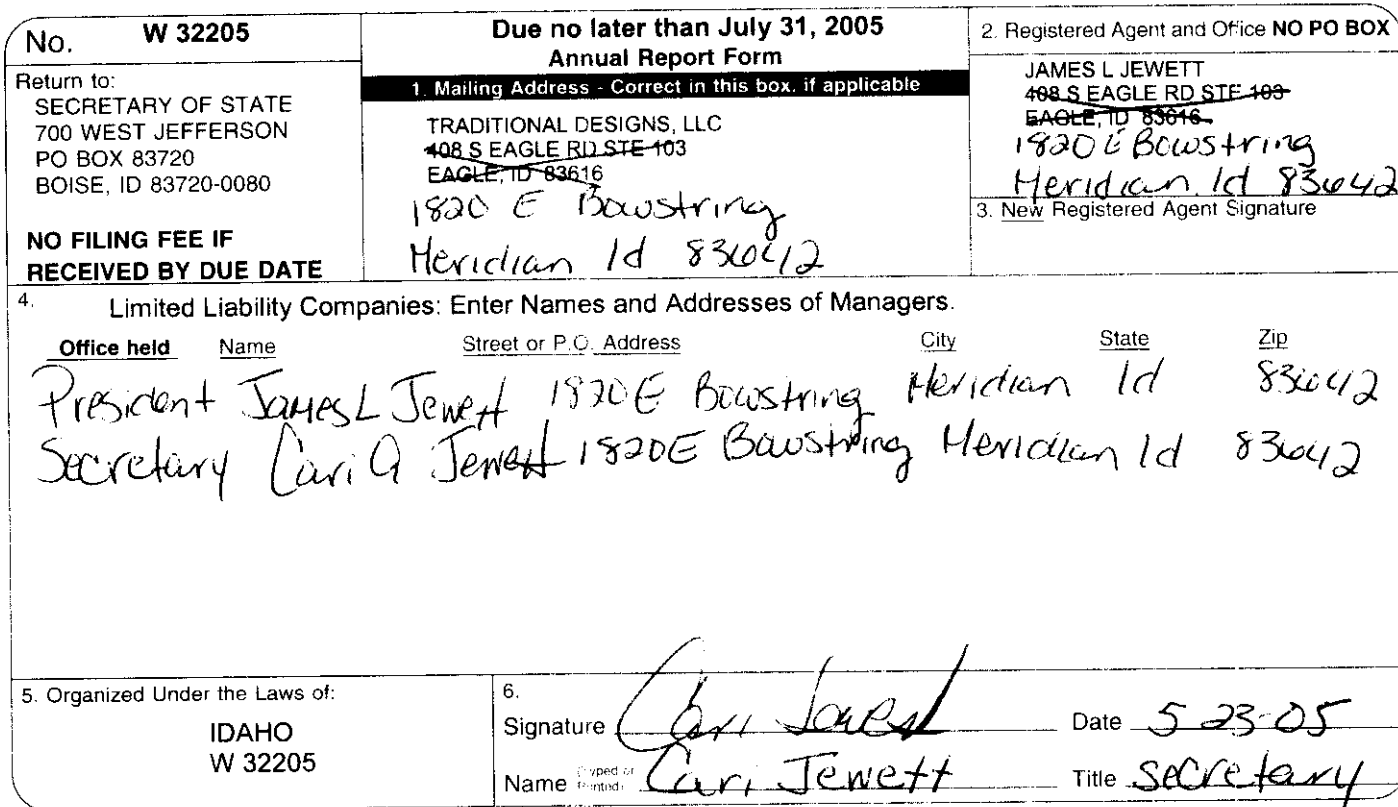 No. W 32205
Return to:
SECRETARY OF STATE
700 WEST JEFFERSON
PO BOX 83720
BOISE, ID 83720-0080
NO FILING FEE IF
RECEIVED BY DUE DATE
Due no later than July 31, 2005
Annual Report Form
1. Mailing Address - Correct in this box, if applicable
TRADITIONAL DESIGNS, LLC
408 S EAGLE RD STE 103
EAGLE, ID 83616
1820 E Bowstring
Meridian Id 83642
2. Registered Agent and Office NO PO BOX
JAMES L JEWETT
408 S EAGLE RD STE 103
EAGLE, ID 83616
1820 E Bowstring
Meridian Id 83642
3. New Registered Agent Signature
4. Limited Liability Companies: Enter Names and Addresses of Managers.
Office held Name Street or P.O. Address City State Zip
President James L Jewett 1820 E Bowstring Meridian Id 83642
Secretary Cari A Jewett 1820 E Bowstring Meridian Id 83642
5. Organized Under the Laws of:
IDAHO
W 32205
6.
Signature Cari Jewett Date 5-23-05
Name (Typed or Printed) Cari Jewett Title Secretary